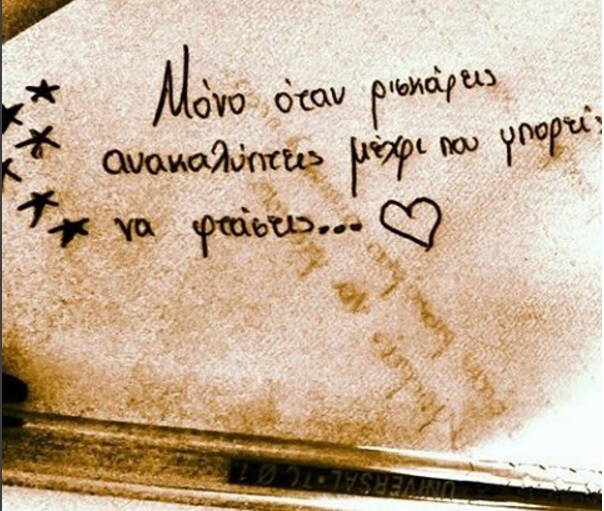 Μόνο όταν ρισκάρεις
ανακαλύπτεις μέχρι που μπορείς
να φτάσεις... ♡
UNIVERSAL•TC01